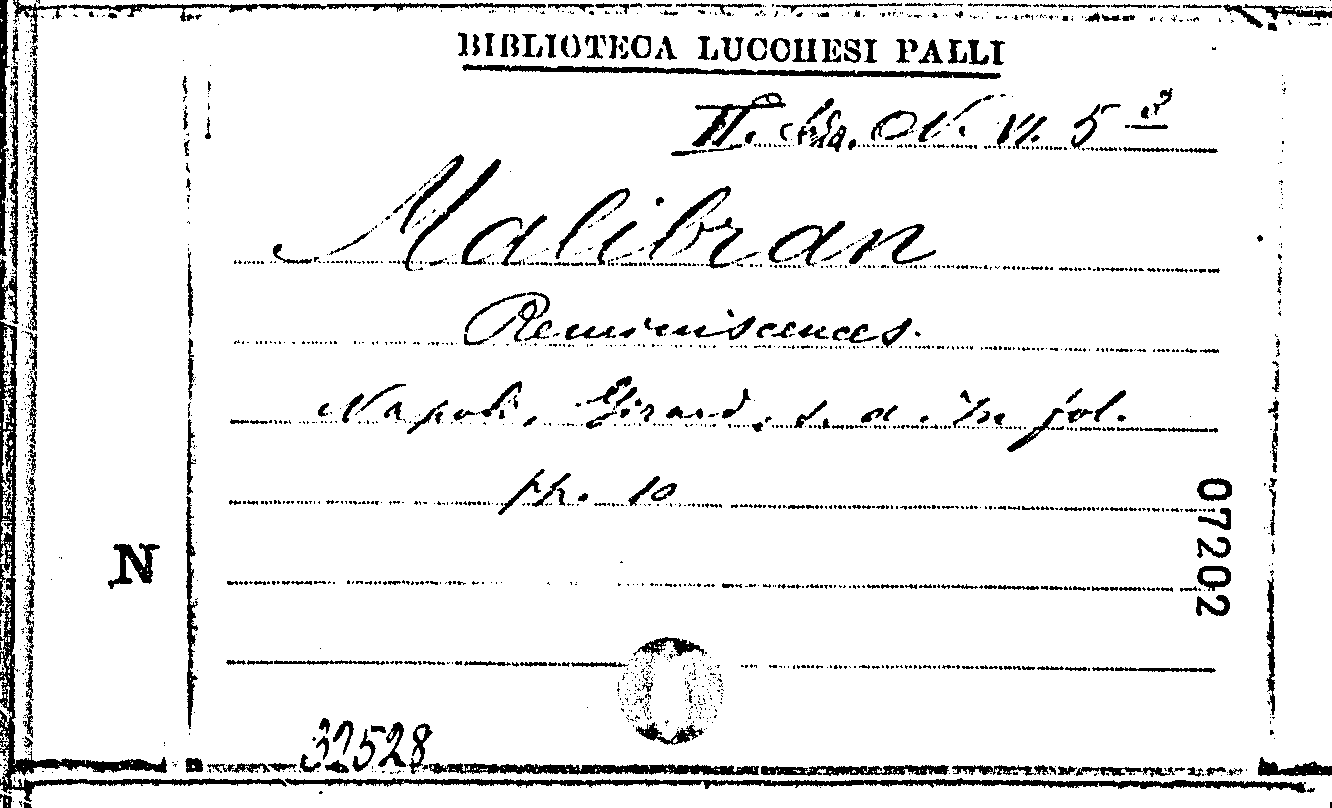 BIBLIOTECA LUCCHESI PALLI
II. VI. 5
Malibran
Reminiscences.
Napoli, Girard, s. d. In fol.
pp. 10
N
07202
32528